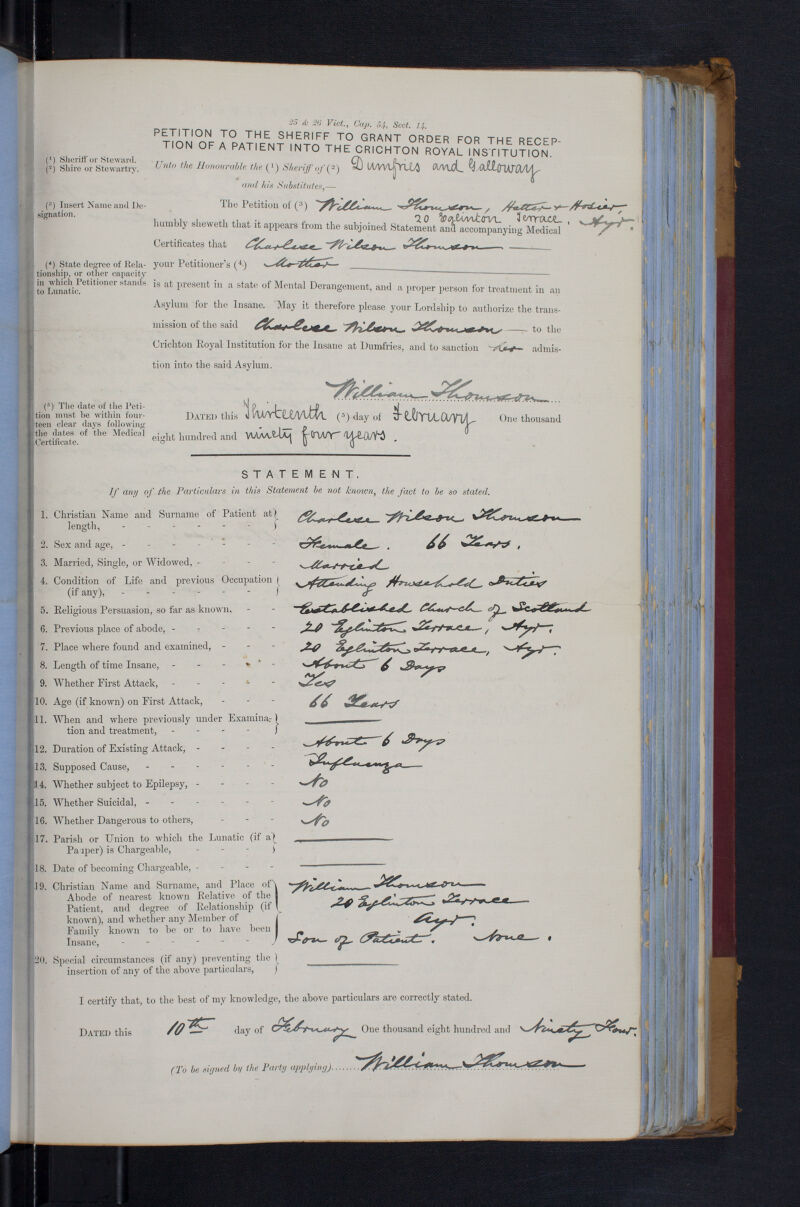 25 & 26 Vict., Cap. 54, Sect. 14.
PETITION TO THE SHERIFF TO GRANT ORDER FOR THE RECEP-
TION OF A PATIENT INTO THE CRICHTON ROYAL INSTITUTION.
(1) Sheriff or Steward.
(2) Shire or Stewartry.
Unto the Honourable the (1) Sheriff of (2) Dumfries and Galloway
and his Substitutes,—
(3) Insert Name and De-
signation.
The Petition of (3) William Thomson, Hatter & Hosier,
20 Eglinton Terrace, Ayr.
humbly sheweth that it appears from the subjoined Statement and accompanying Medical
Certificates that Charlese Wilson Thomson
(4) State degree of Rela-
tionship, or other capacity
in which Petitioner stands
to Lunatic.
your Petitioner's (4) Mother
is at present in a state of Mental Derangement, and a proper person for treatment in an
Asylum for the Insane. May it therefore please your Lordship to authorize the trans-
mission of the said Charlese Wilson Thomson — to the
Crichton Royal Institution for the Insane at Dumfries, and to sanction her admis-
sion into the said Asylum.
William Thomson
(5) The date of the Peti-
tion must be within four-
teen clear days following
the dates of the Medical
Certificate.
DATED this Thirteenth (5) day of February One thousand
eight hundred and ninety four years.
STATEMENT.
If any of the Particulars in this Statement be not known, the fact to be so stated.
1. Christian Name and Surname of Patient at length, - - - - - - Charlese Wilson Thomson
2. Sex and age, - - - - - - Female. 66 Years.
3. Married, Single, or Widowed, - - - - Married
4. Condition of Life and previous Occupation (if any), - - - - - - Attending Household Duties
5. Religious Persuasion, so far as known, - - Established Church of Scotland
6. Previous place of abode, - - - - - 20 Eglinton Terrace, Ayr.
7. Place where found and examined, - - - 20 Eglinton Terrace, Ayr.
8. Length of time Insane, - - - - - About 6 Days
9. Whether First Attack, - - - - - Yes
10. Age (if known) on First Attack, - - - 66 Years
11. When and where previously under Examina-
tion and treatment, - - - - -
12. Duration of Existing Attack, - - - - About 6 Days
13. Supposed Cause, - - - - - - Influenza
14. Whether subject to Epilepsy, - - - - No
15. Whether Suicidal, - - - - - - No
16. Whether Dangerous to others, - - - No
17. Parish or Union to which the Lunatic (if a
Pauper) is Chargeable, - - - -
18. Date of becoming Chargeable, - - - -
19. Christian Name and Surname, and Place of William Thomson
Abode of nearest known Relative of the
Patient, and degree of Relationship (if 20 Eglinton Terrace
known), and whether any Member of Ayr.
Family known to be or to have been
Insane, - - - - - - - Son of Patient. None.
20. Special circumstances (if any) preventing the
insertion of any of the above particulars,
I certify that, to the best of my knowledge, the above particulars are correctly stated.
DATED this 10th day of February One thousand eight hundred and Ninety Four.
(To be signed by the Party applying)........William Thomson